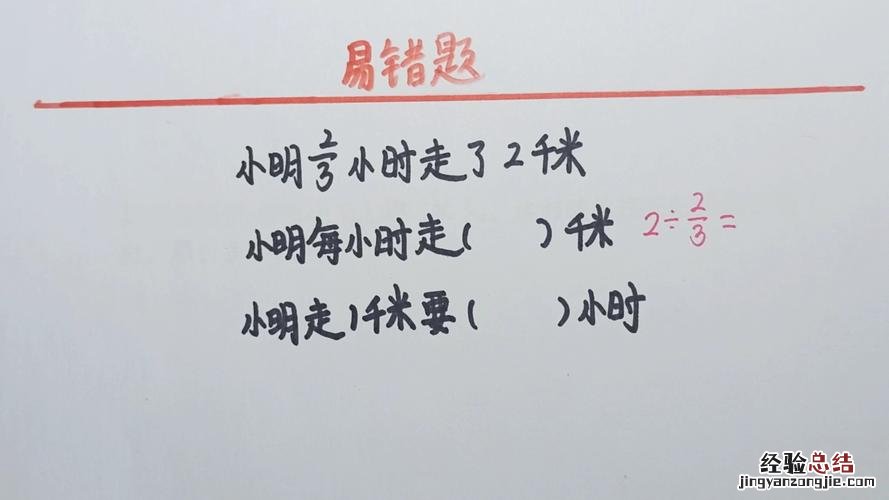 易错题
小明2/3小时走了2千米
小明每小时走(    )千米 2÷2/3=
小明走1千米要(    )小时
经验总结
jingyanzongjie.com